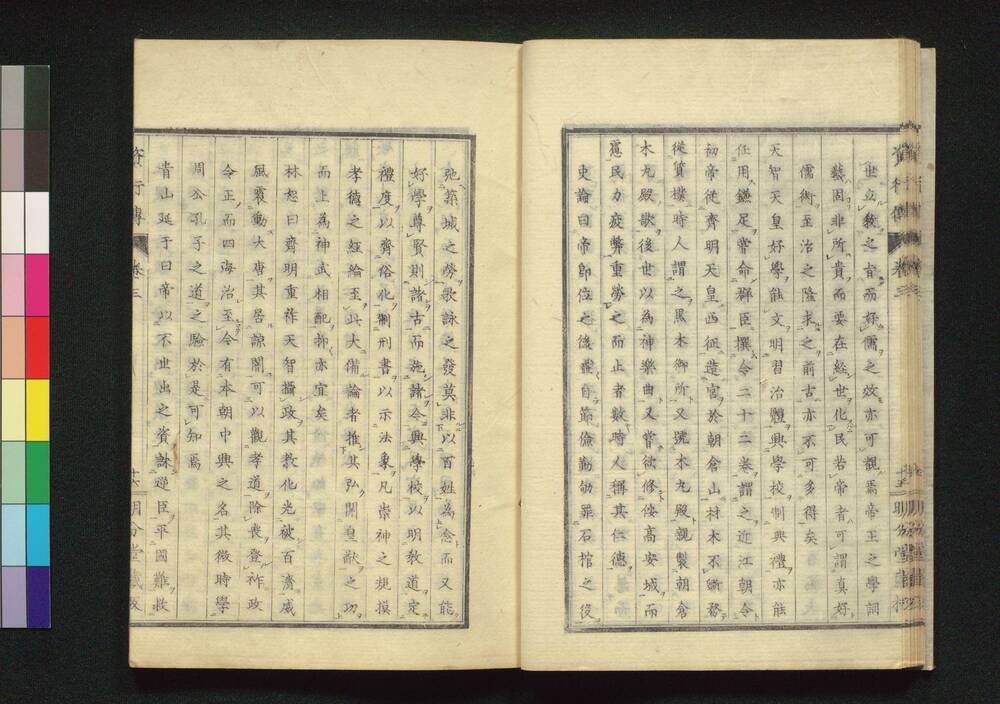 世立敎之旨而好儒之效亦可觀焉帝王之學詞
藝固非所貴而要在經世化民若帝者可謂真好
儒術至治之隆求之前古亦不可多得矣
天智天皇好學能文明習治體興學校制典禮亦能
任用鎌足嘗命群臣撰令二十二卷謂之近江朝令
初帝從齊明天皇西征造宮於朝倉山材木不斲務
從質樸時人謂之黑木御所又號木丸殿親製朝倉
木丸殿歌後世以為神樂曲又嘗欲修倭高安城而
憲民力疲弊重勞之而止者數時人稱其仁德
史論曰帝卽位之後躬自節儉勤劬罷石棺之役
弛築城之勞歌詠之發莫非以百姓為念而又能
好學尊賢則諸古而施諸今興學校以明敎道定
禮度以齊俗化制刑書以示法象凡崇神之規摸
孝德之經綸至此大備論者推其弘開皇猷之功
而上為神武相配抑亦宜矣
林恕曰齊明重祚天智攝政其敎化光被百濟威
風震動大唐其居諒闇可以觀孝道除喪登祚政
令正而四海治至今有本朝中興之名其微時學
周公孔子之道之驗於是可知焉
青山延于曰帝以不世出之資誅逆臣平國難救
資行傳 卷三 十六 明分堂藏板